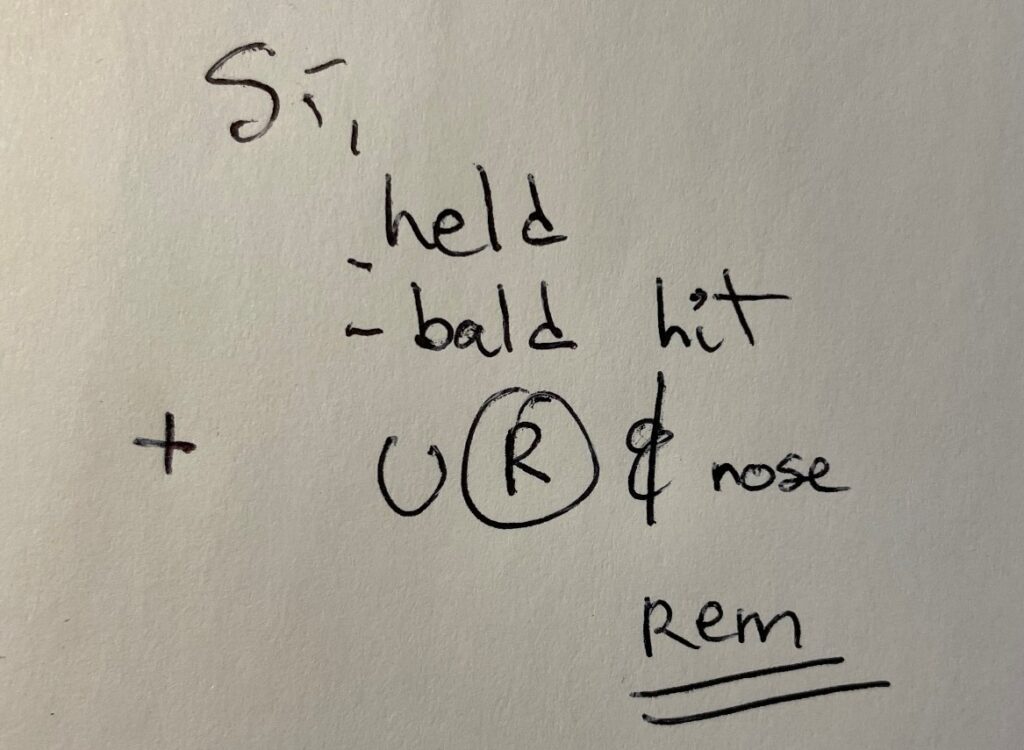 Si,
- held
- bald hit
+ U R & nose
Rem